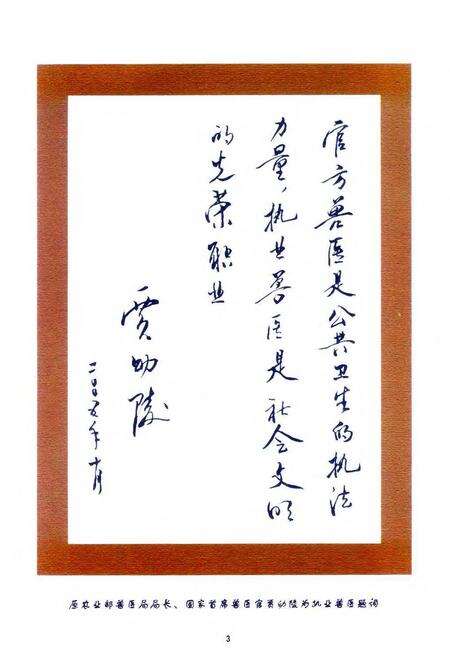 官方兽医是公共卫生的执法
力量，执业兽医是社会文明
的光荣职业
贾幼陵
二〇〇五年十月
原农业部兽医局局长、国家首席兽医官贾幼陵为执业兽医题词
3